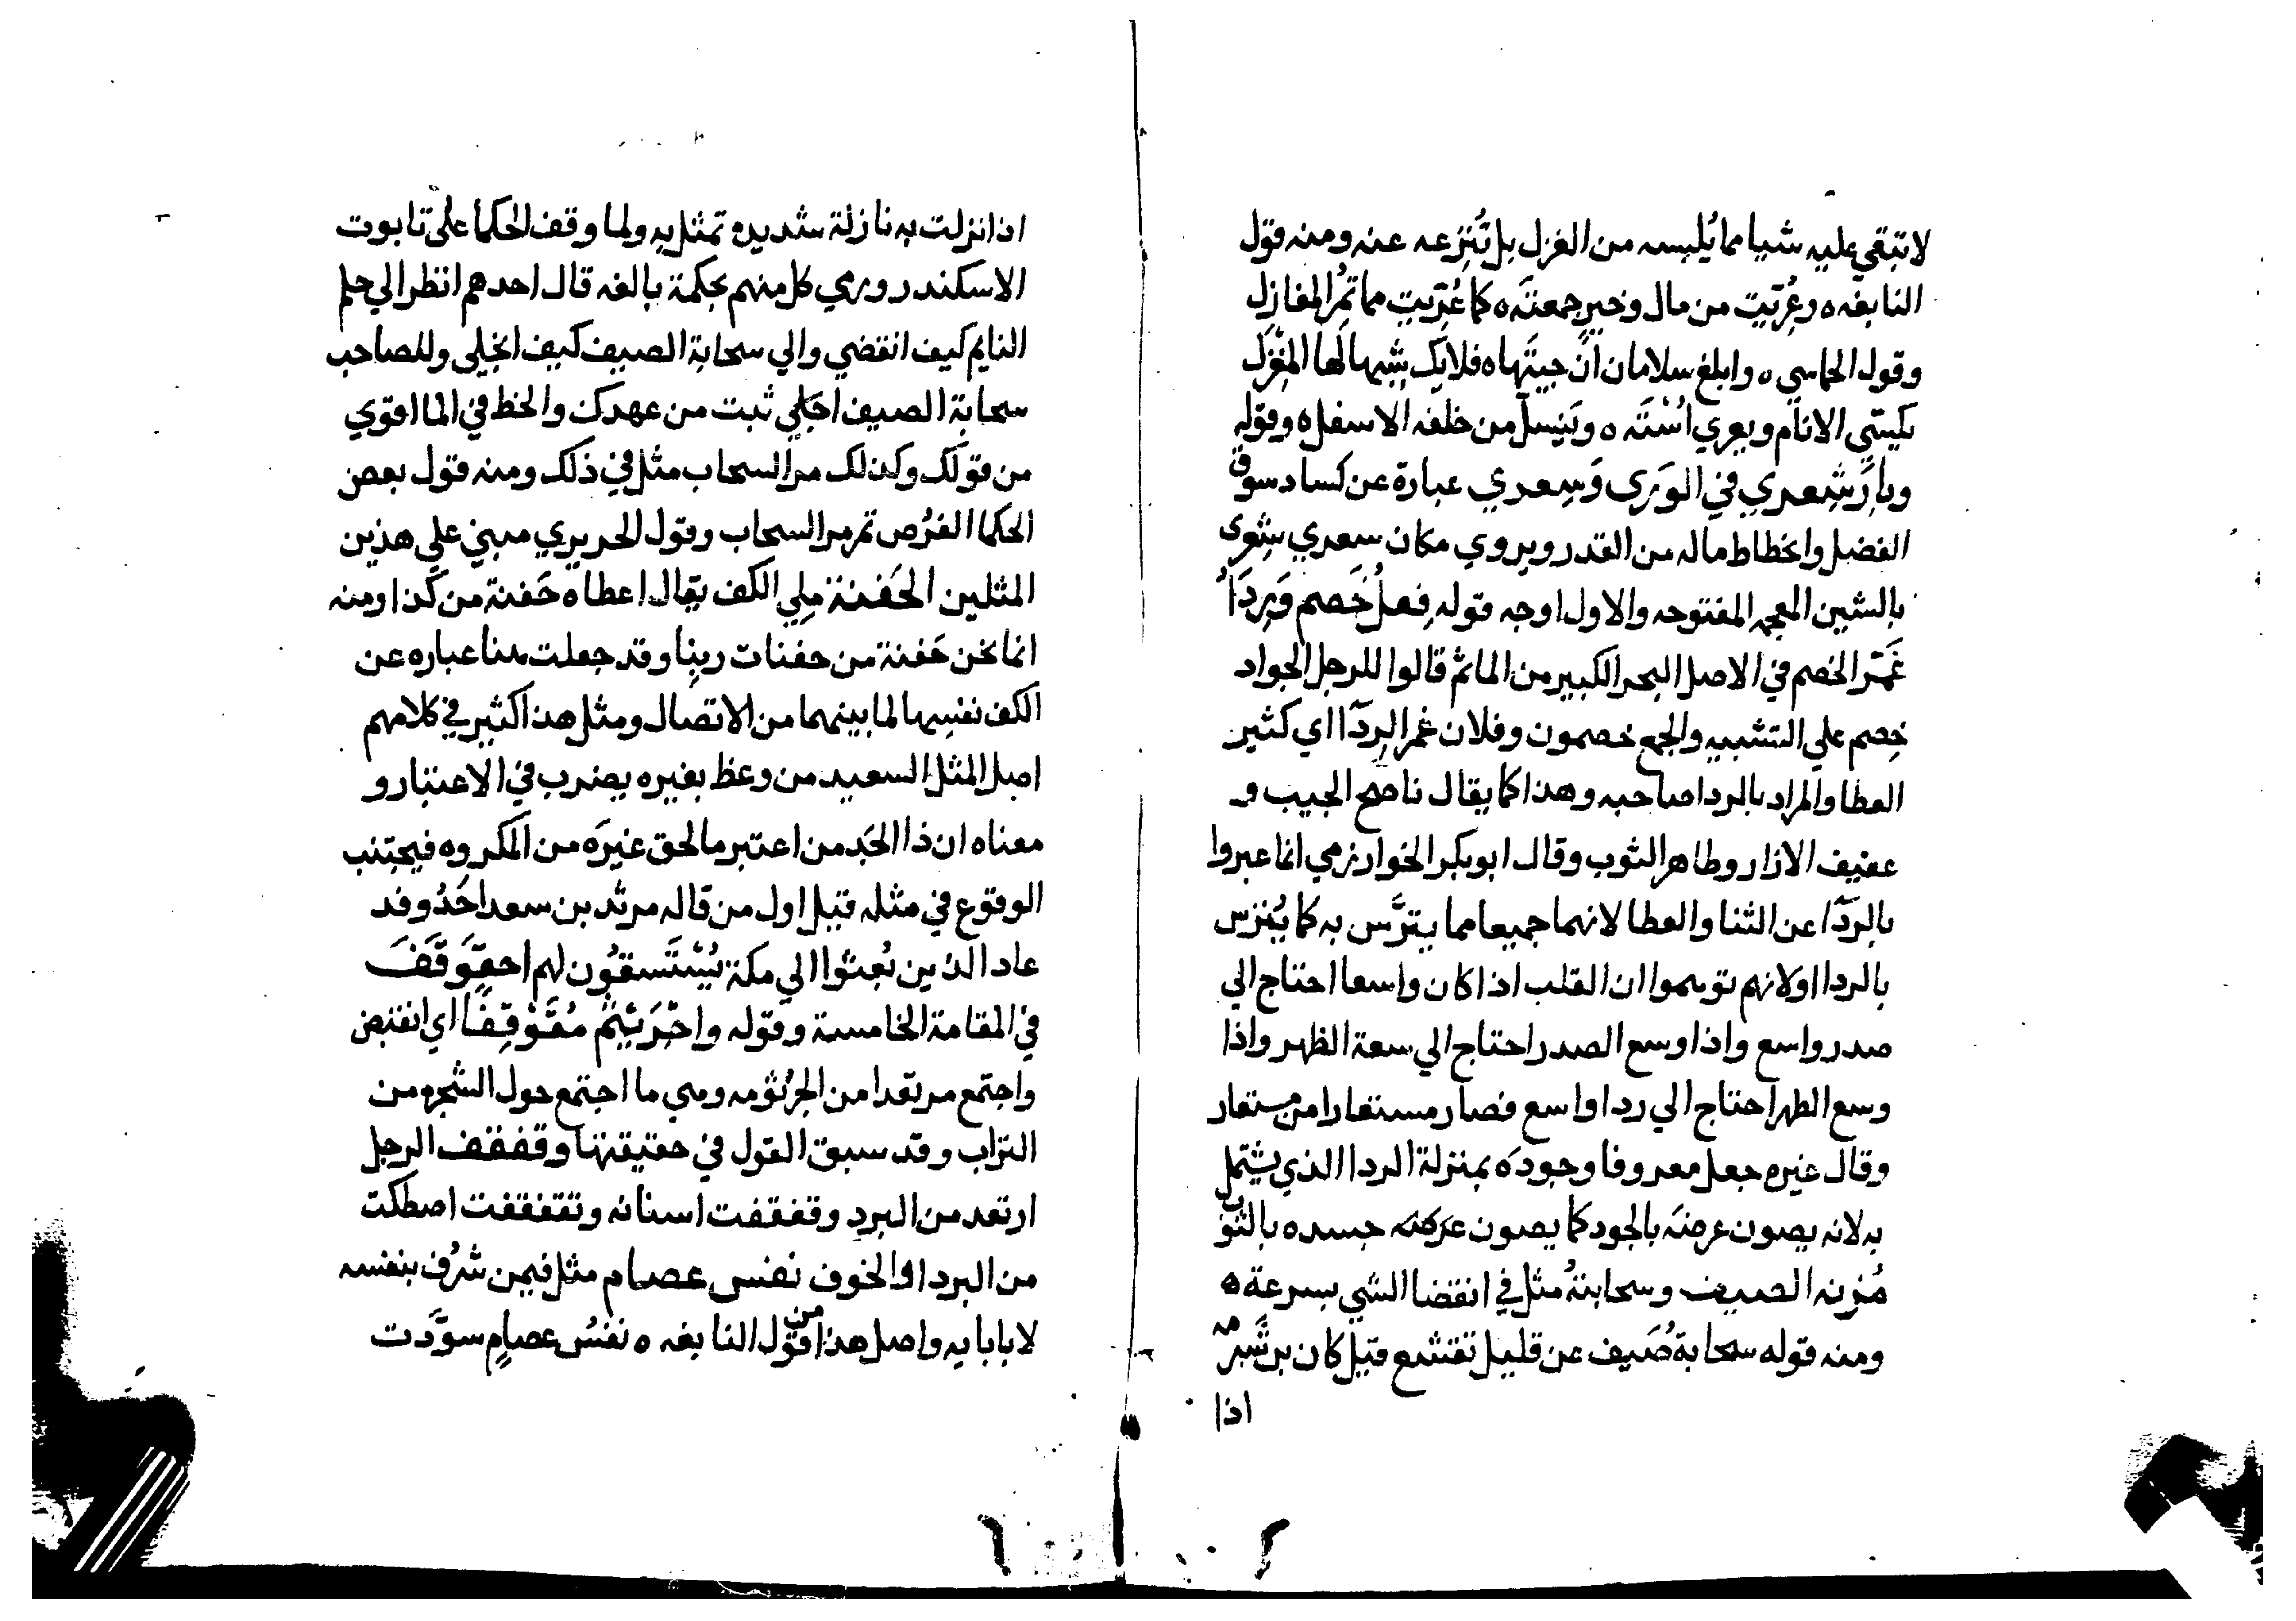 لا تبقي عليه شيا مما يُلبسه من الغزل بل تُنزعه عنه ومنه قول
النابغه ه وعُرّيت من مال وخيرٍ جمعتَه ه كما عُرّيت مما تُمرّ المغازل
وقول الحماسي ه وابلغ سلامان ان جيتَها ه فلا يك شبها لها المغزل
يكسي الانام ويعري استَه ه وينسلّ من خلفه الاسفل ه وقوله
وبارَ شِعري في الوَرى وَسِعري عبارة عن كساد سوق
الفضل وانحطاط ماله من القدر ويروي مكان سعري شِعرى
بالشين المعجمه المفتوحه والاول اوجه قوله فِعلُ خَصم وَرِدَاُ
غَمر الخصم في الاصل البحر الكبير من الما ثم قالوا للرجل الجواد
خِصم علي التشبيه والجمع خصمون وفلان غمر الردآ اي كثير
العطا والمراد بالردا صاحبه وهذا كما يقال ناصح الجيب و
عفيف الازار وطاهر الثوب وقال ابو بكر الخوارزمي انما عبروا
بالردآ عن الثنا والعطا لانهما جميعا مما يترَّس به كما يُترس
بالردا او لانهم توهموا ان القلب اذا كان واسعا احتاج الي
صدر واسع واذا وسع الصدر احتاج الي سعة الظهر واذا
وسع الظهر احتاج الي ردا واسع فصار مستعارا من مستعار
وقال غيره جعل معروفا وجودَه بمنزلة الردا الذي يشتمل
به لانه يصون عرضَه بالجود كما يصون جسده بالثوب
مُزنه الصيف وسحابتهُ مثل في انقضا الشي بسرعة ه
ومنه قوله سحابة صَيف عن قليل تقشع قيل كان بن شَبرمه
اذا
اذا نزلت به نازلة شديده تمثل به ولما وقف الحكمأ علي تابوت
الاسكندر ورمي كل منهم بحكمة بالغه قال احدهم انظر الي حلم
النايم كيف انقضي والي سحابة الصيف كيف انجلي وللصاحب
سحابة الصيف اجلي ثبت من عهدك والخط في الما اقوي
من قولك وكذلك مر السحاب مثل في ذلك ومنه قول بعض
الحكما الفرُص تمر مر السحاب وقول الحريري مبني علي هذين
المثلين الحَفنة مِلي الكف يقال اعطاه حَفنة من كذا ومنه
انما نحن حَفنة من حفنات ربنا وقد جعلت هنا عباره عن
الكف نفسها لما بينهما من الاتصال ومثل هذا كثير في كلامهم
اصل المثل السعيد من وعظ بغيره يضرب في الاعتبار و
معناه ان ذا الجَد من اعتبر ما لحق غيرَه من المكروه فيجتنب
الوقوع في مثله قيل اول من قاله مرثد بن سعد احَدُ وفد
عاد الذين بُعثوا الي مكة يَسْتَسقوُن لهم احقَوقَفَ
في المقامة الخامسة وقوله واجْرَنْثَمَ مُقْفَوْقِفًا اي انقبض
واجتمع مرتعدا من الجرُثومه وهي ما اجتمع حول الشجره من
التراب وقد سبق القول في حقيقتها وقفقف الرجل
ارتعد من البرد وقفقفت اسنانه وتقفقفت اصطكت
من البرد او الخوف نفس عصام مثل فيمن شَرُف بنفسه
لا بابايه واصل هذا من قول النابغه ه نفسُ عصامٍ سوَّدت